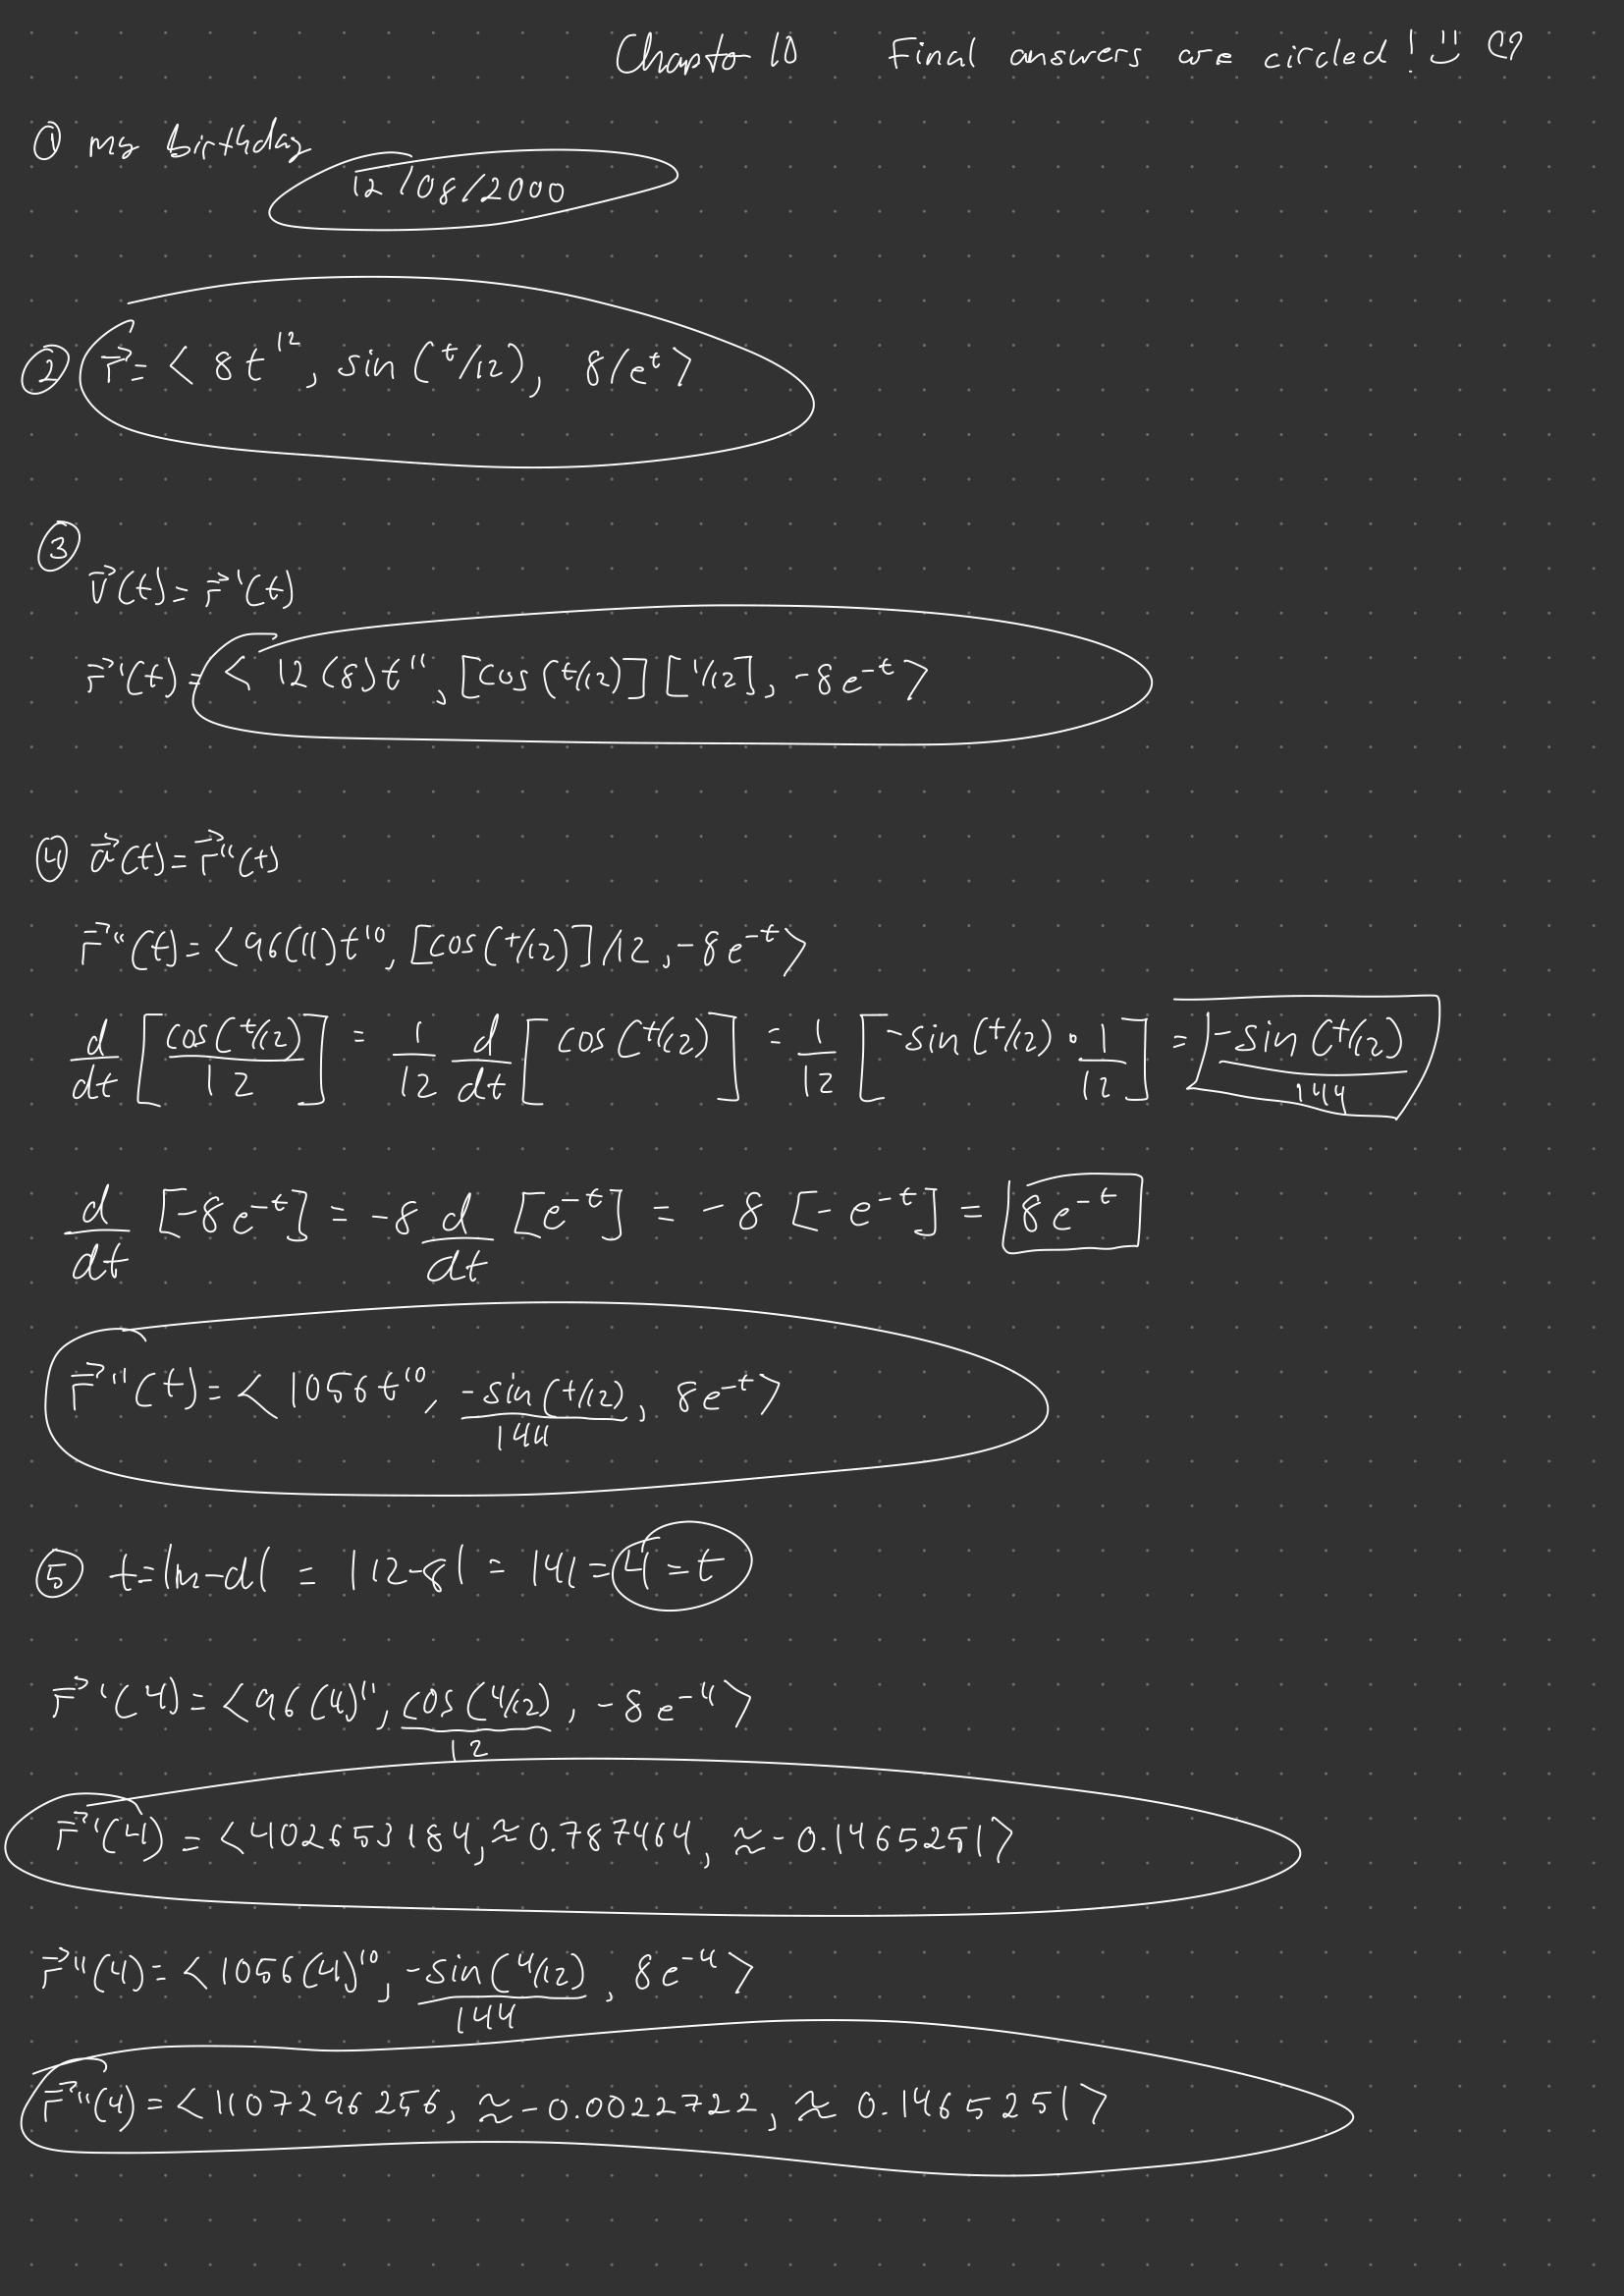 Chapter 10 Final answers are circled!
① my birthday
12/08/2000
② r⃗ = < 8t¹², sin(t/12), 8/eᵗ>
③
v⃗(t) = r⃗'(t)
r⃗'(t) = < 12(8)t¹¹, [cos(t/12)][1/12], -8e⁻ᵗ>
④ a⃗(t) = r⃗''(t)
r⃗''(t) = <96(11)t¹⁰, [cos(t/12)]/12, -8e⁻ᵗ>
d/dt [cos(t/12)/12] = 1/12 d/dt [cos(t/12)] = 1/12 [-sin(t/12) · 1/12] = -sin(t/12)/144
d/dt [-8e⁻ᵗ] = -8 d/dt [e⁻ᵗ] = -8 [-e⁻ᵗ] = 8e⁻ᵗ
r⃗''(t) = <1056t¹⁰, -sin(t/12)/144, 8e⁻ᵗ>
⑤ t = |m-d| = |12-8| = |4| = 4 = t
r⃗'(4) = <96(4)¹¹, cos(4/12)/12, -8e⁻⁴>
r⃗'(4) = <402653184, ≈0.787464, ≈-0.1465251>
r⃗''(4) = <1056(4)¹⁰, -sin(4/12)/144, 8e⁻⁴>
r⃗''(4) = <1107296256, ≈-0.0022722, ≈ 0.1465251>